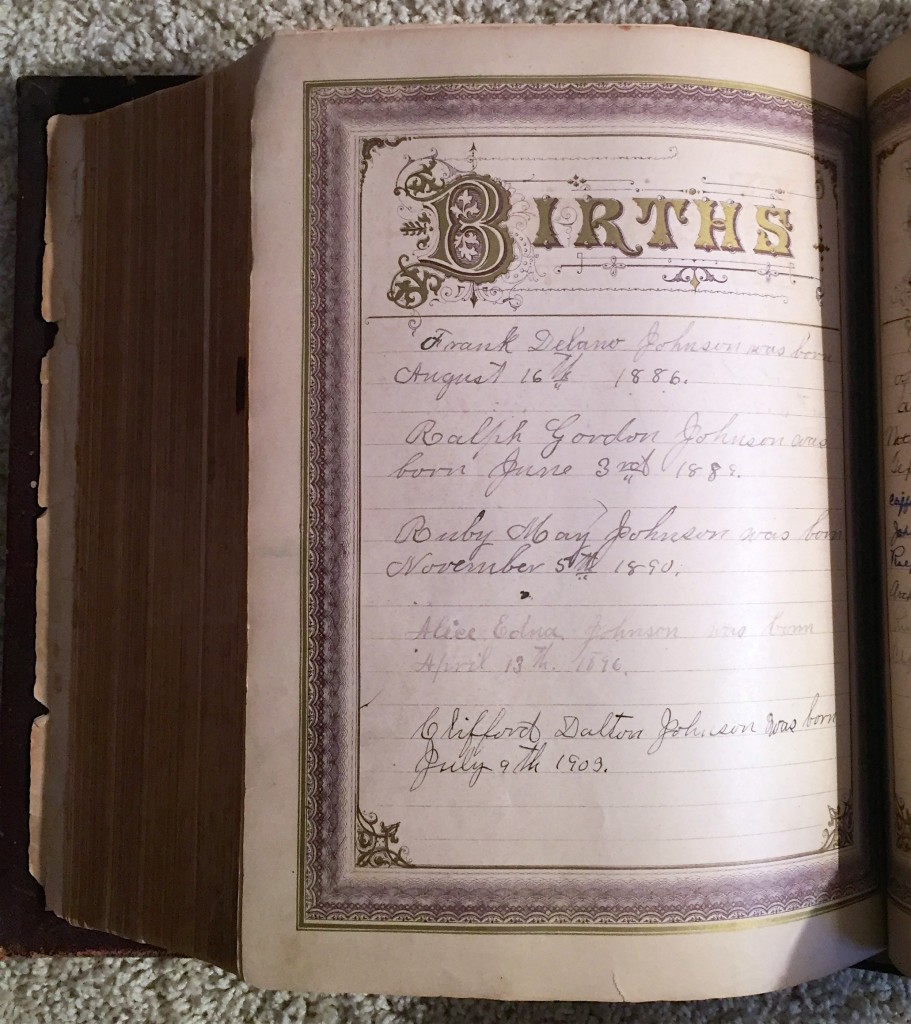 BIRTHS
Frank Delano Johnson was born
August 16th 1886.
Ralph Gordon Johnson was
born June 3rd 1889.
Ruby May Johnson was born
November 5th 1890.
Alice Edna Johnson was born
April 13th. 1896.
Clifford Dalton Johnson was born
July 9th 1903.